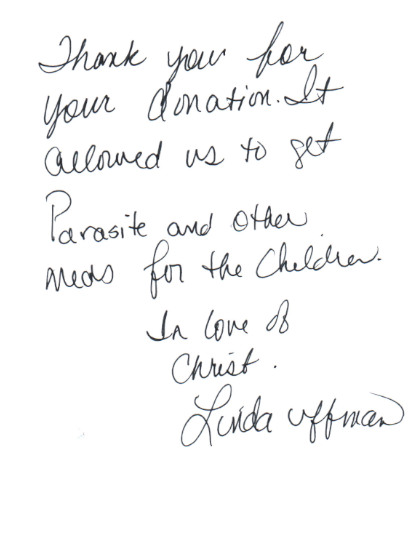 Thank you for
your donation. It
allowed us to get
Parasite and other
meds for the Children.
In love of
Christ.
Linda Uffman